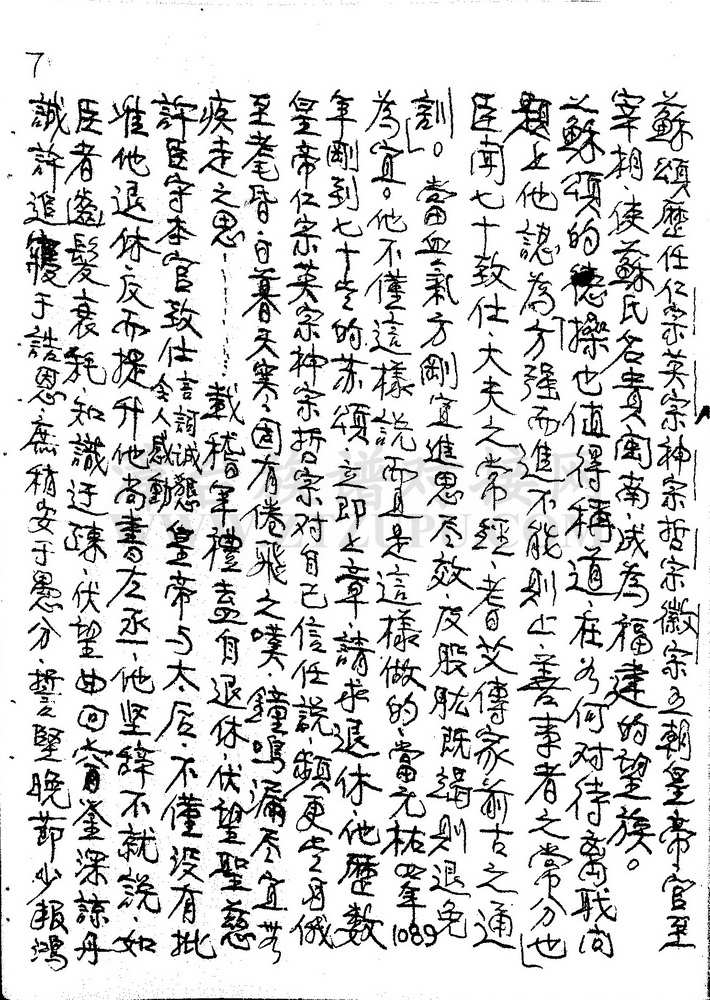 7
蘇頌歷任仁宗英宗神宗哲宗徽宗五朝皇帝、官至
宰相、使蘇氏名貴閩南、成為福建的望族。
蘇頌的德操也值得稱道、在如何对待离职问
題上他認為「方强而進不能則止、善事者之常分也
臣闻七十致仕大夫之常經、耆艾傳家前古之通
訓」。當血氣方剛宜進思尽效、及股肱既竭則退免
為宜。他不僅這樣説而且是這樣做的、當元祐四年1089
年剛到七十岁的苏頌立即上章、請求退休、他歷数
皇帝仁宗英宗神宗哲宗对自己信任説、頻更岁月俄
至耄昏、日暮天寒、固有倦飛之嘆、鐘鳴漏尽宜无
疾走之思………載稽年禮盍自退休、伏望聖慈
許臣守本官致仕言詞诚懇令人感動皇帝与太后、不僅没有批
准他退休、反而提升他尚書左丞、他坚辞不就説、如
臣者齒髮衰耗、知識迂疎、伏望曲回睿鉴深諒丹
誠許追寢于誥恩、庶稍安于愚分、誓堅晩節少報鴻
WWW.ZTZUPU.COM